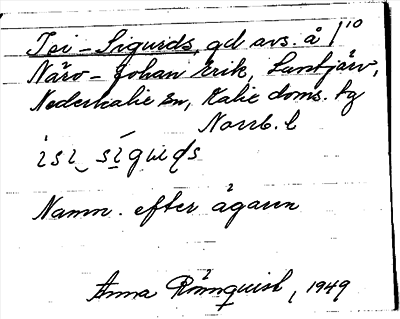 Isi-Sigurds, gd avs. å 1/10
Näro-Johan Erik, Lantjärv,
Nederkalix sn, Kalix doms. tg
Norrb. l
isi siguds
Namn. efter ägaren
Anna Rönnquist, 1949